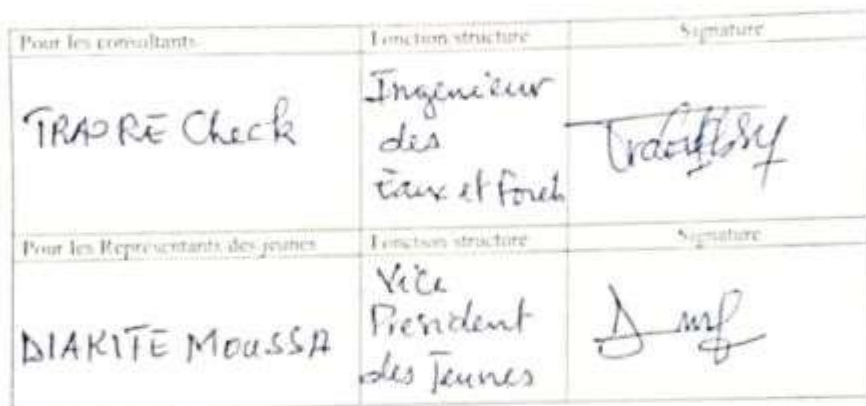 Pour les consultants Fonction structure Signature
TRAORE Check
Ingenieur
des
Eaux et Forets
Pour les Représentants des jeunes Fonction structure Signature
DIAKITE MOUSSA
Vice
President
des Jeunes